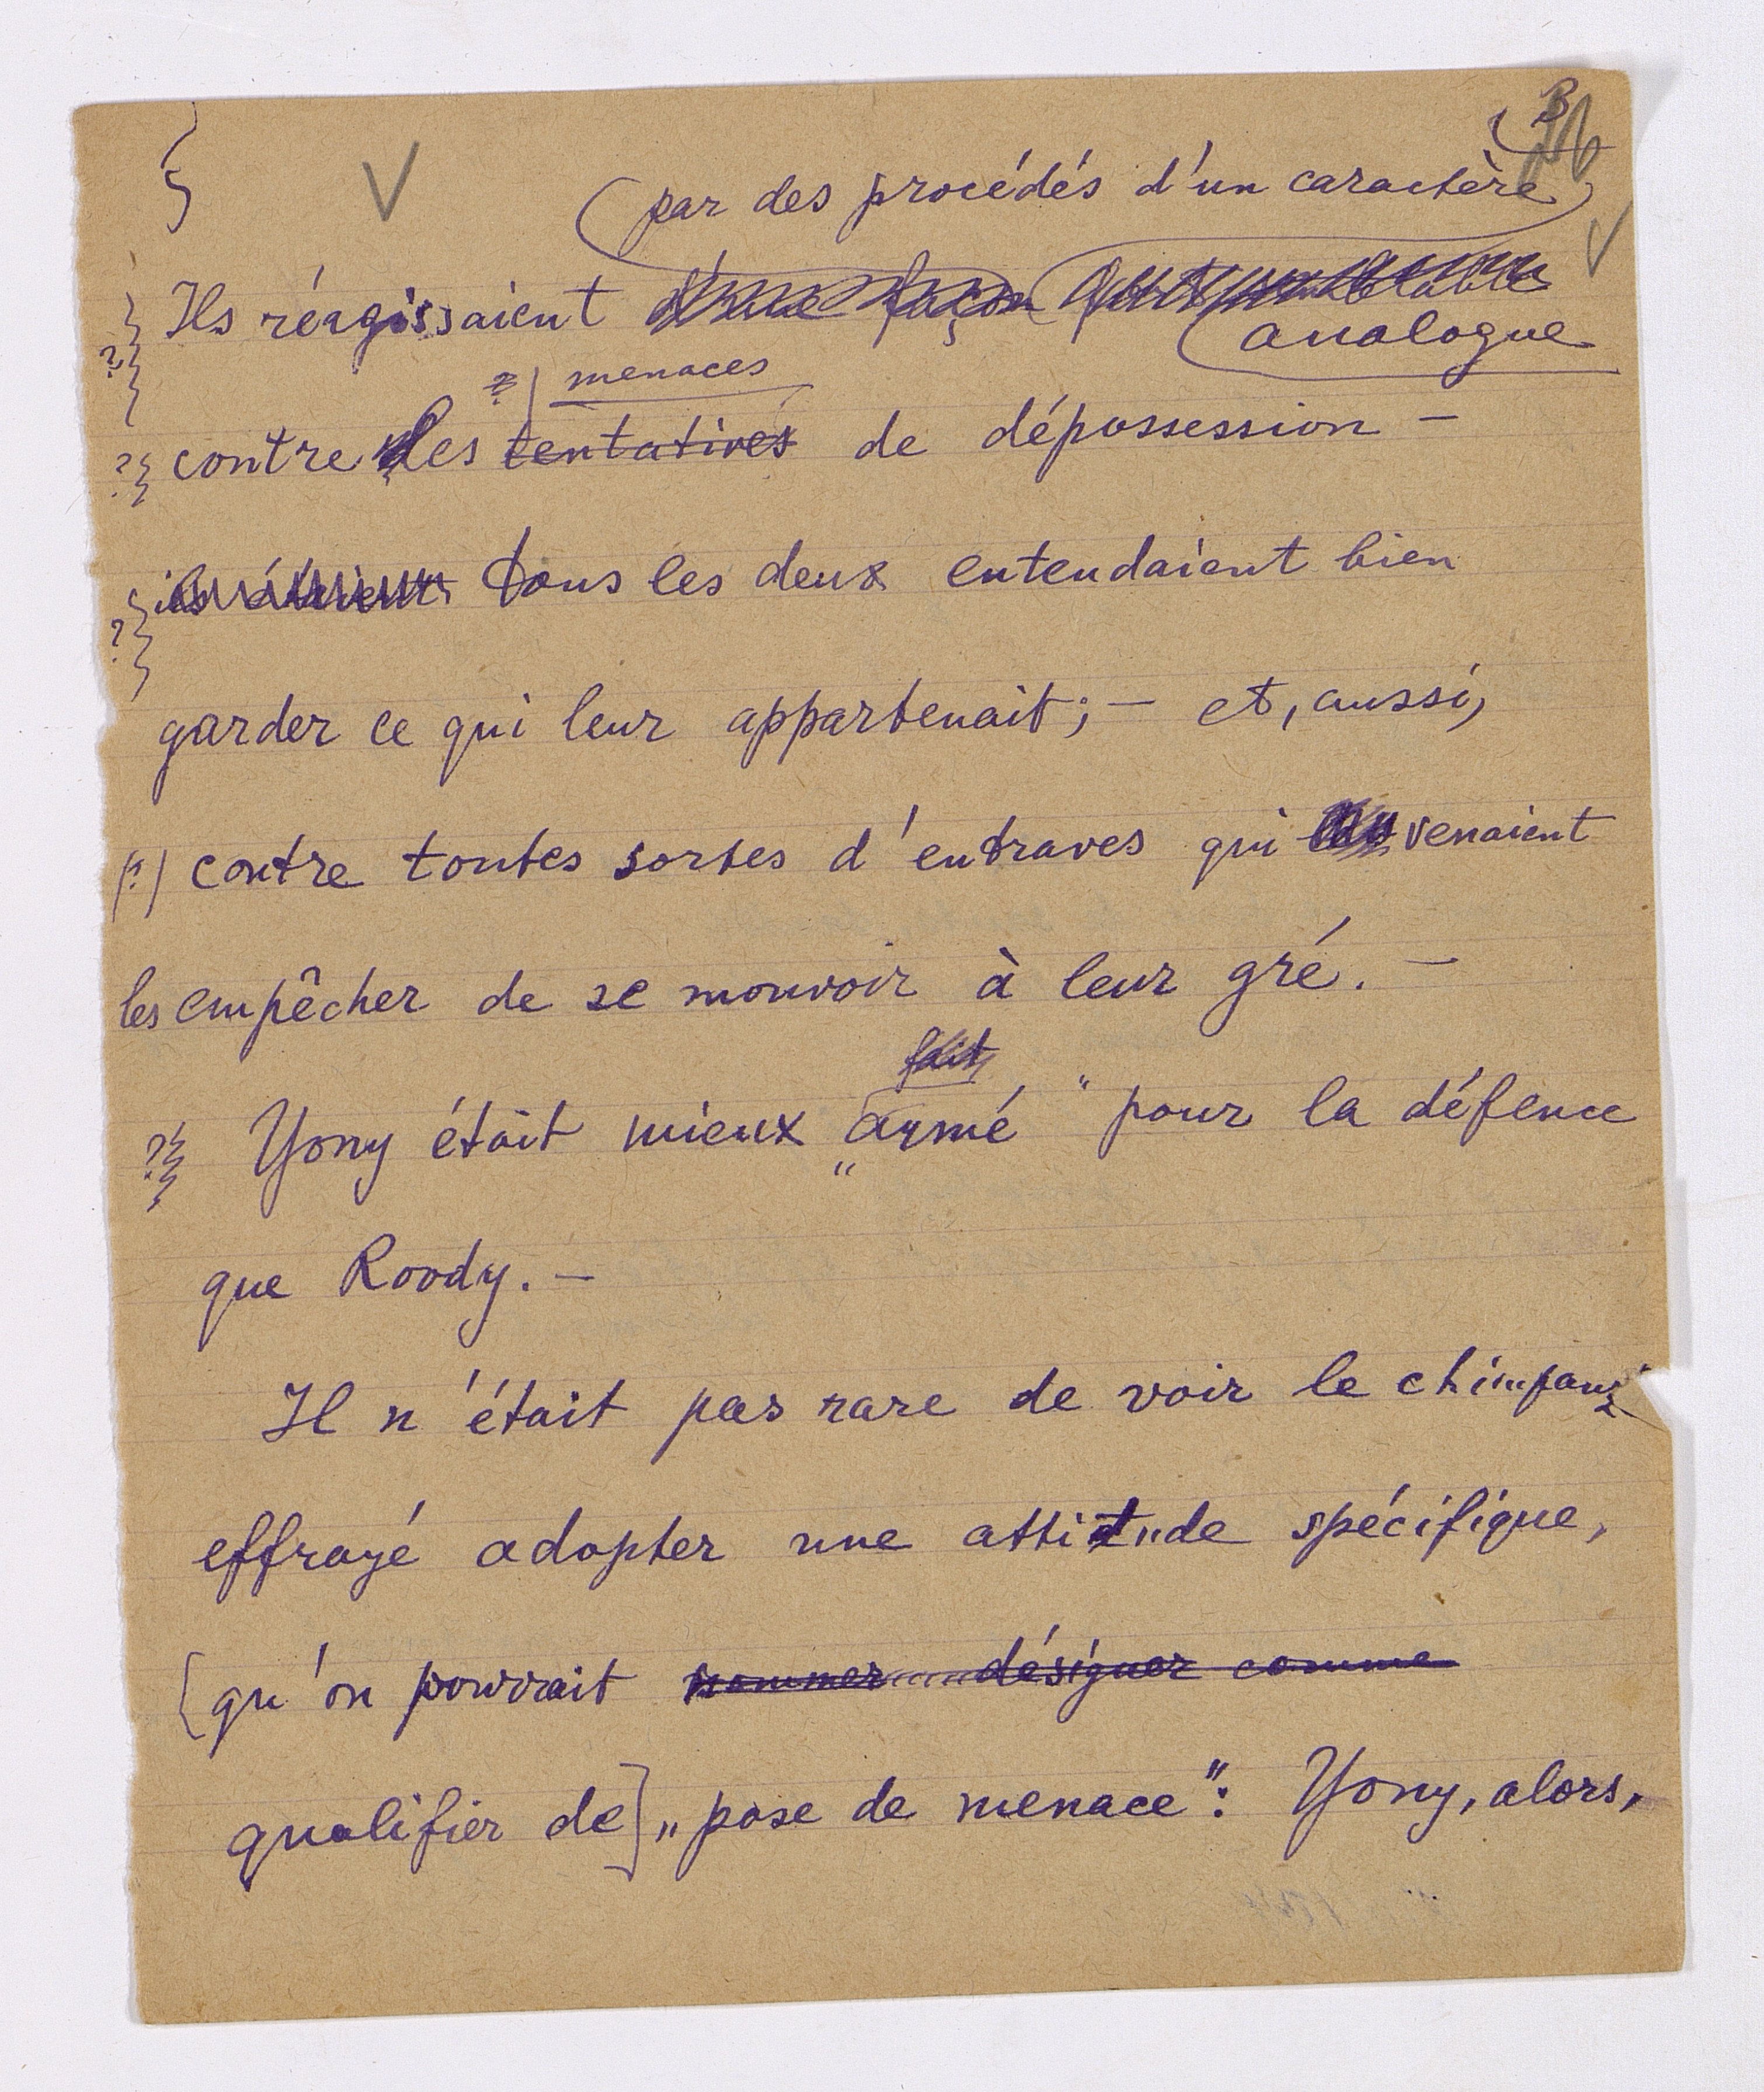 3
(par des procédés d'un caractère
Ils réagissaient d'une façon
analogue
?) menaces
contre les tentatives de dépossession —
tous les deux entendaient bien
garder ce qui leur appartenait; — et, aussi,
(?) contre toutes sortes d'entraves qui venaient
les empêcher de se mouvoir à leur gré. —
fait
?} Yony était mieux „armé" pour la défence
que Roody. —
Il n'était pas rare de voir le chimpanz
effrayé adopter une attitude spécifique,
[qu'on pourrait nommer désigner comme
qualifier de] „pose de menace": Yony, alors,